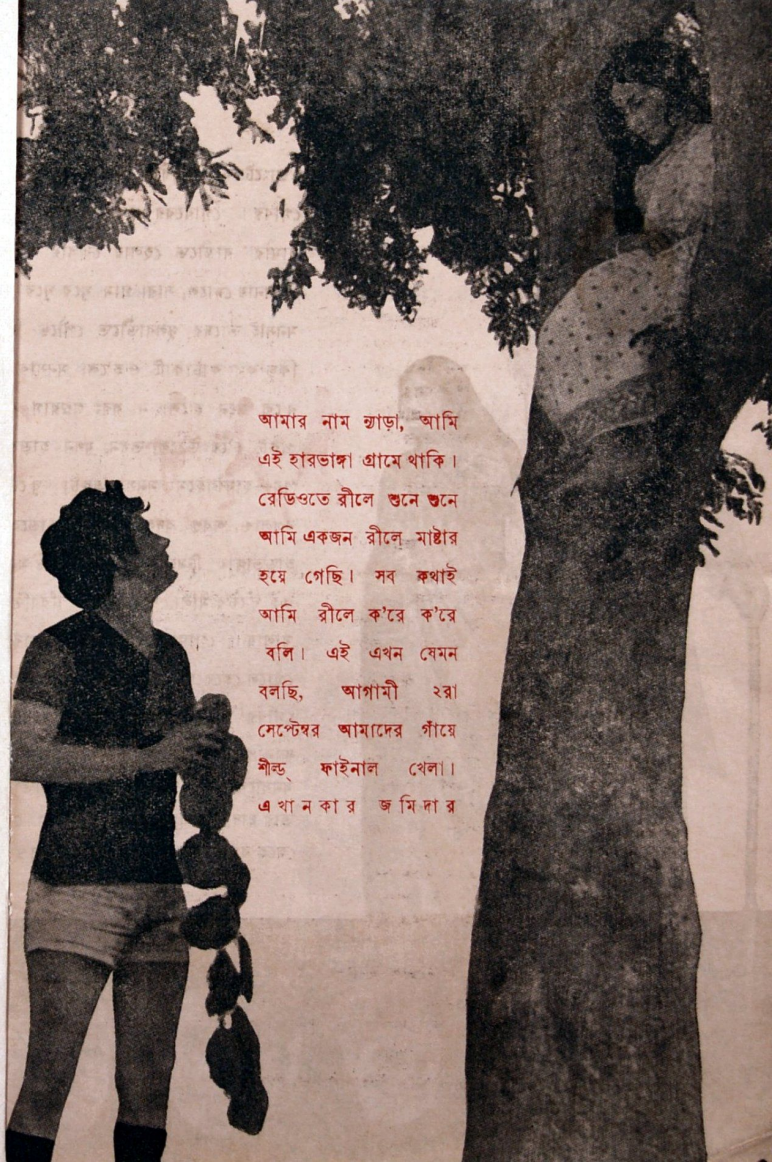 আমার নাম ন্যাড়া, আমি
এই হারভাঙ্গা গ্রামে থাকি।
রেডিওতে রীলে শুনে শুনে
আমি একজন রীলে মাষ্টার
হয়ে গেছি। সব কথাই
আমি রীলে ক'রে ক'রে
বলি। এই এখন যেমন
বলছি, আগামী ২রা
সেপ্টেম্বর আমাদের গাঁয়ে
শীল্ড্ ফাইনাল খেলা।
এখানকার জমিদার